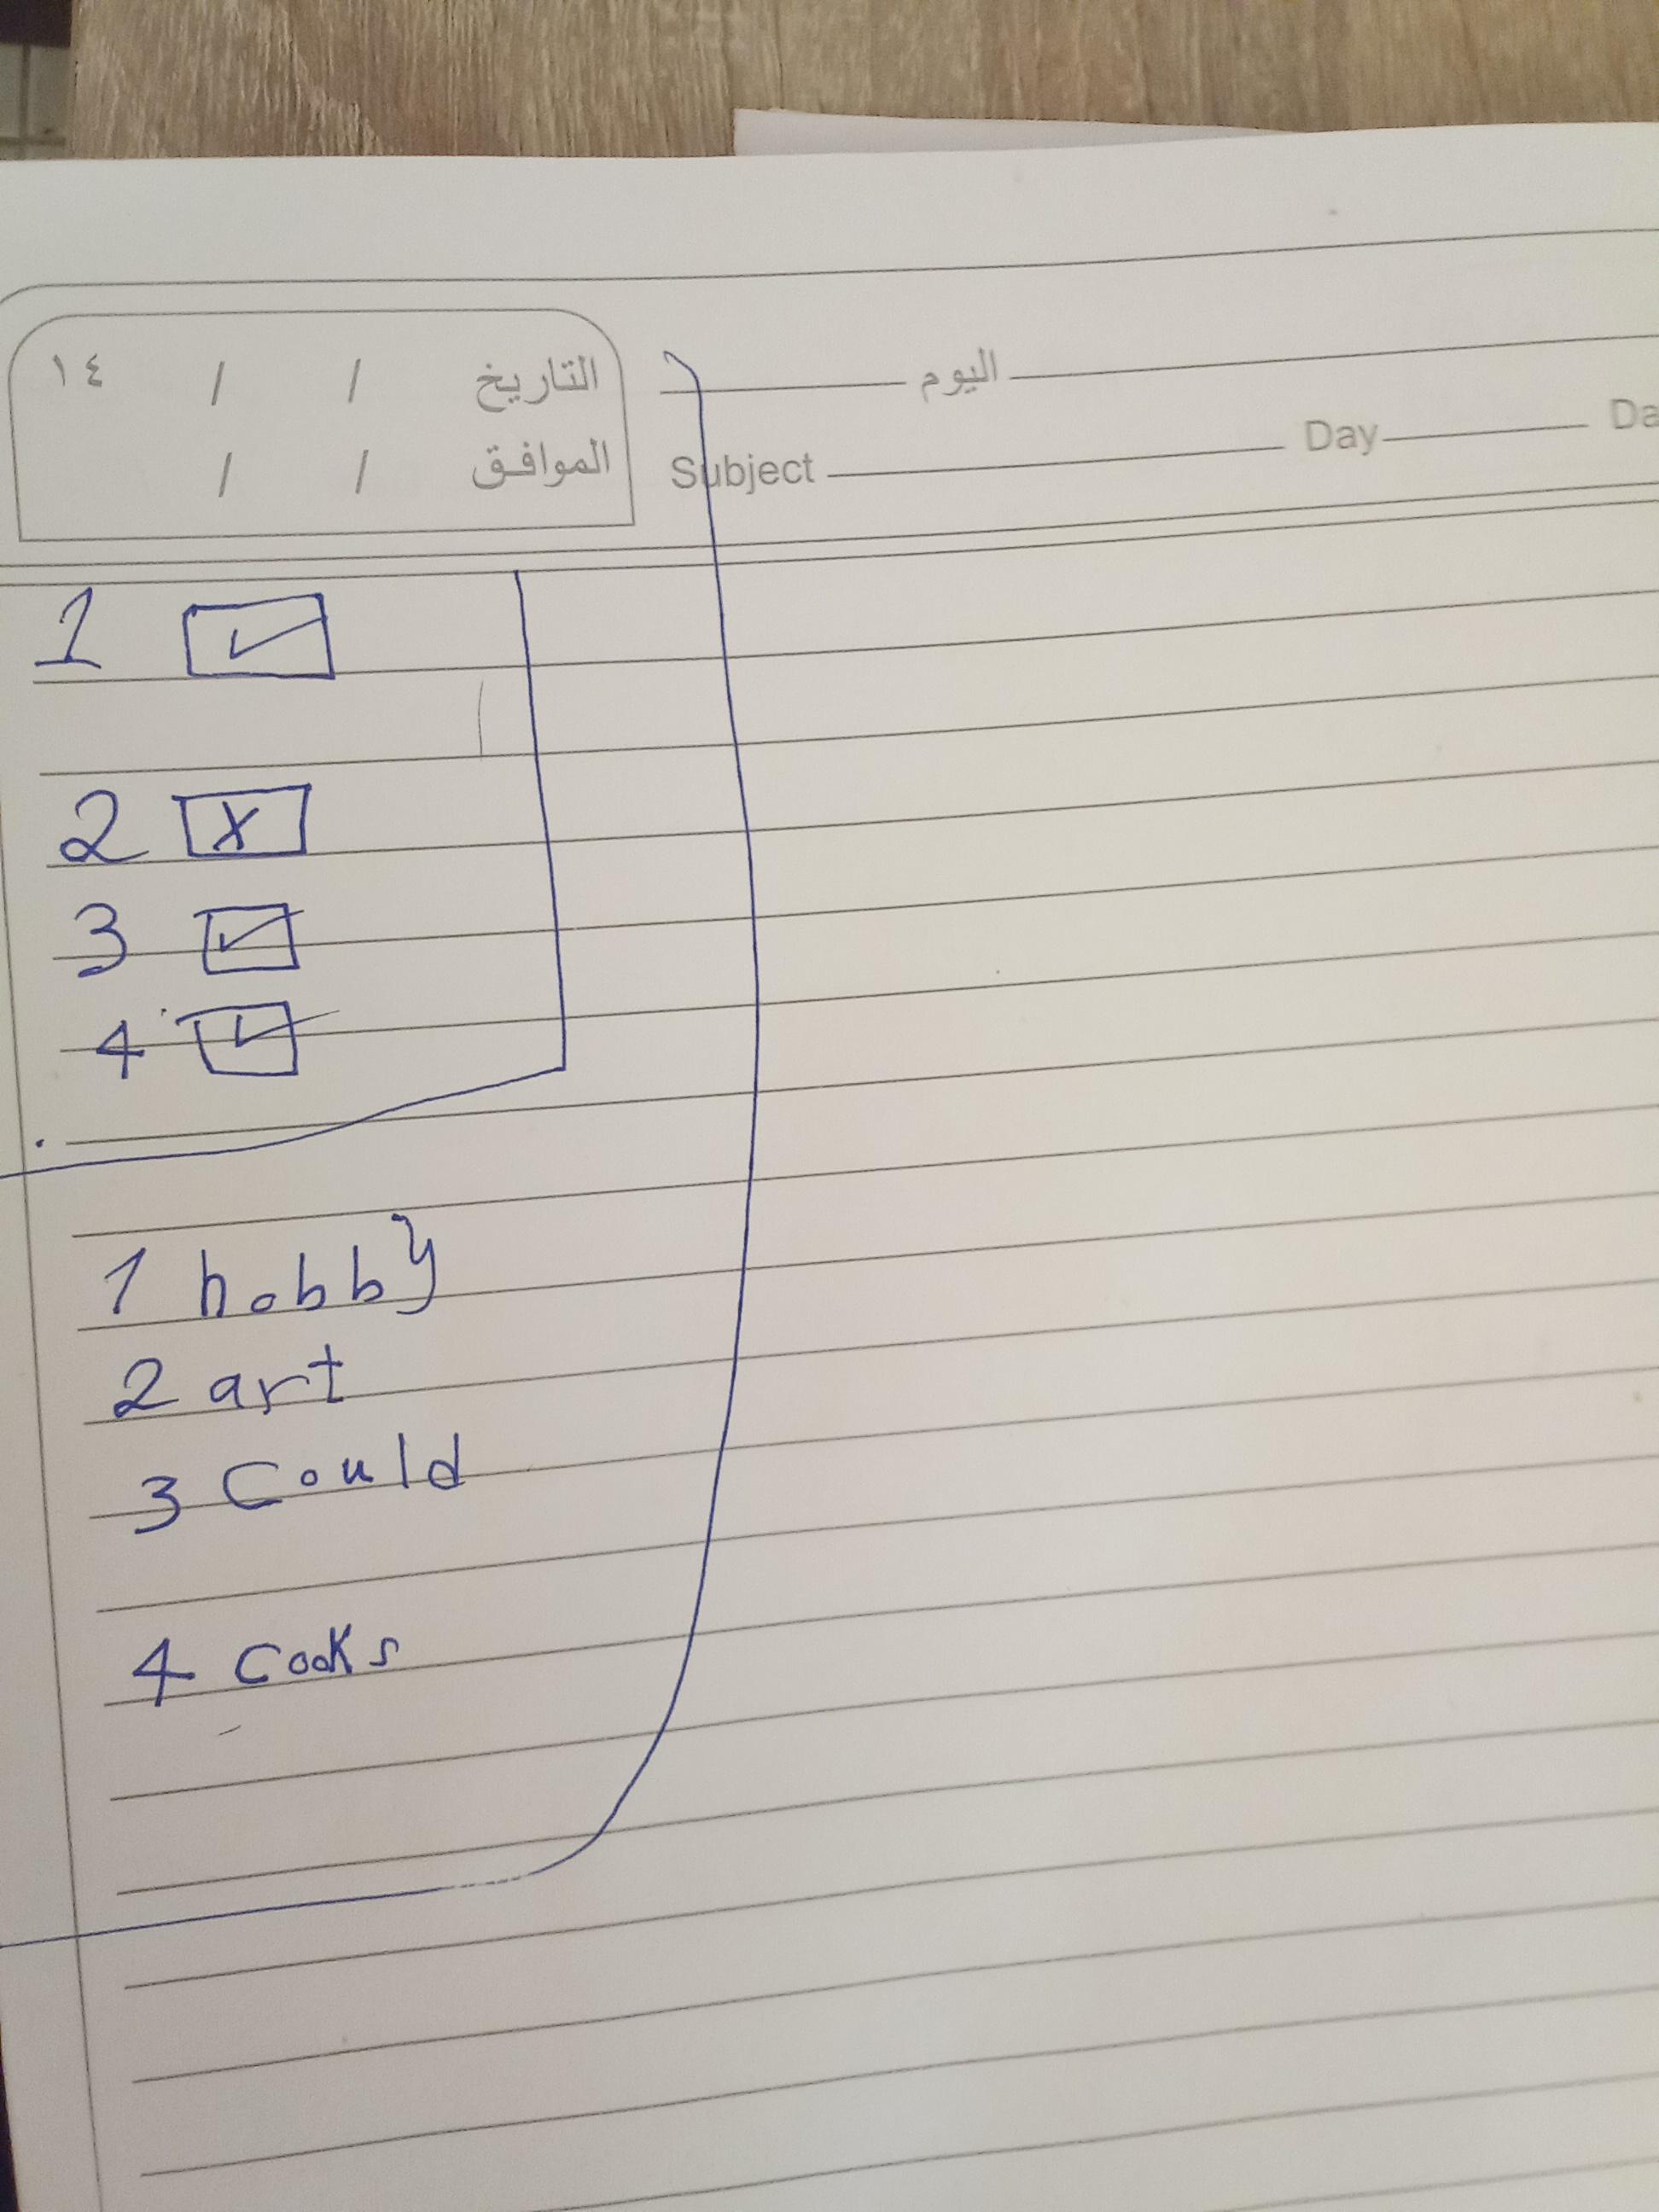 التاريخ / / ١٤
الموافق / /
اليوم
Subject Day Da
1 ✓
2 x
3 ✓
4 ✓
1 hobby
2 art
3 Could
4 Cooks